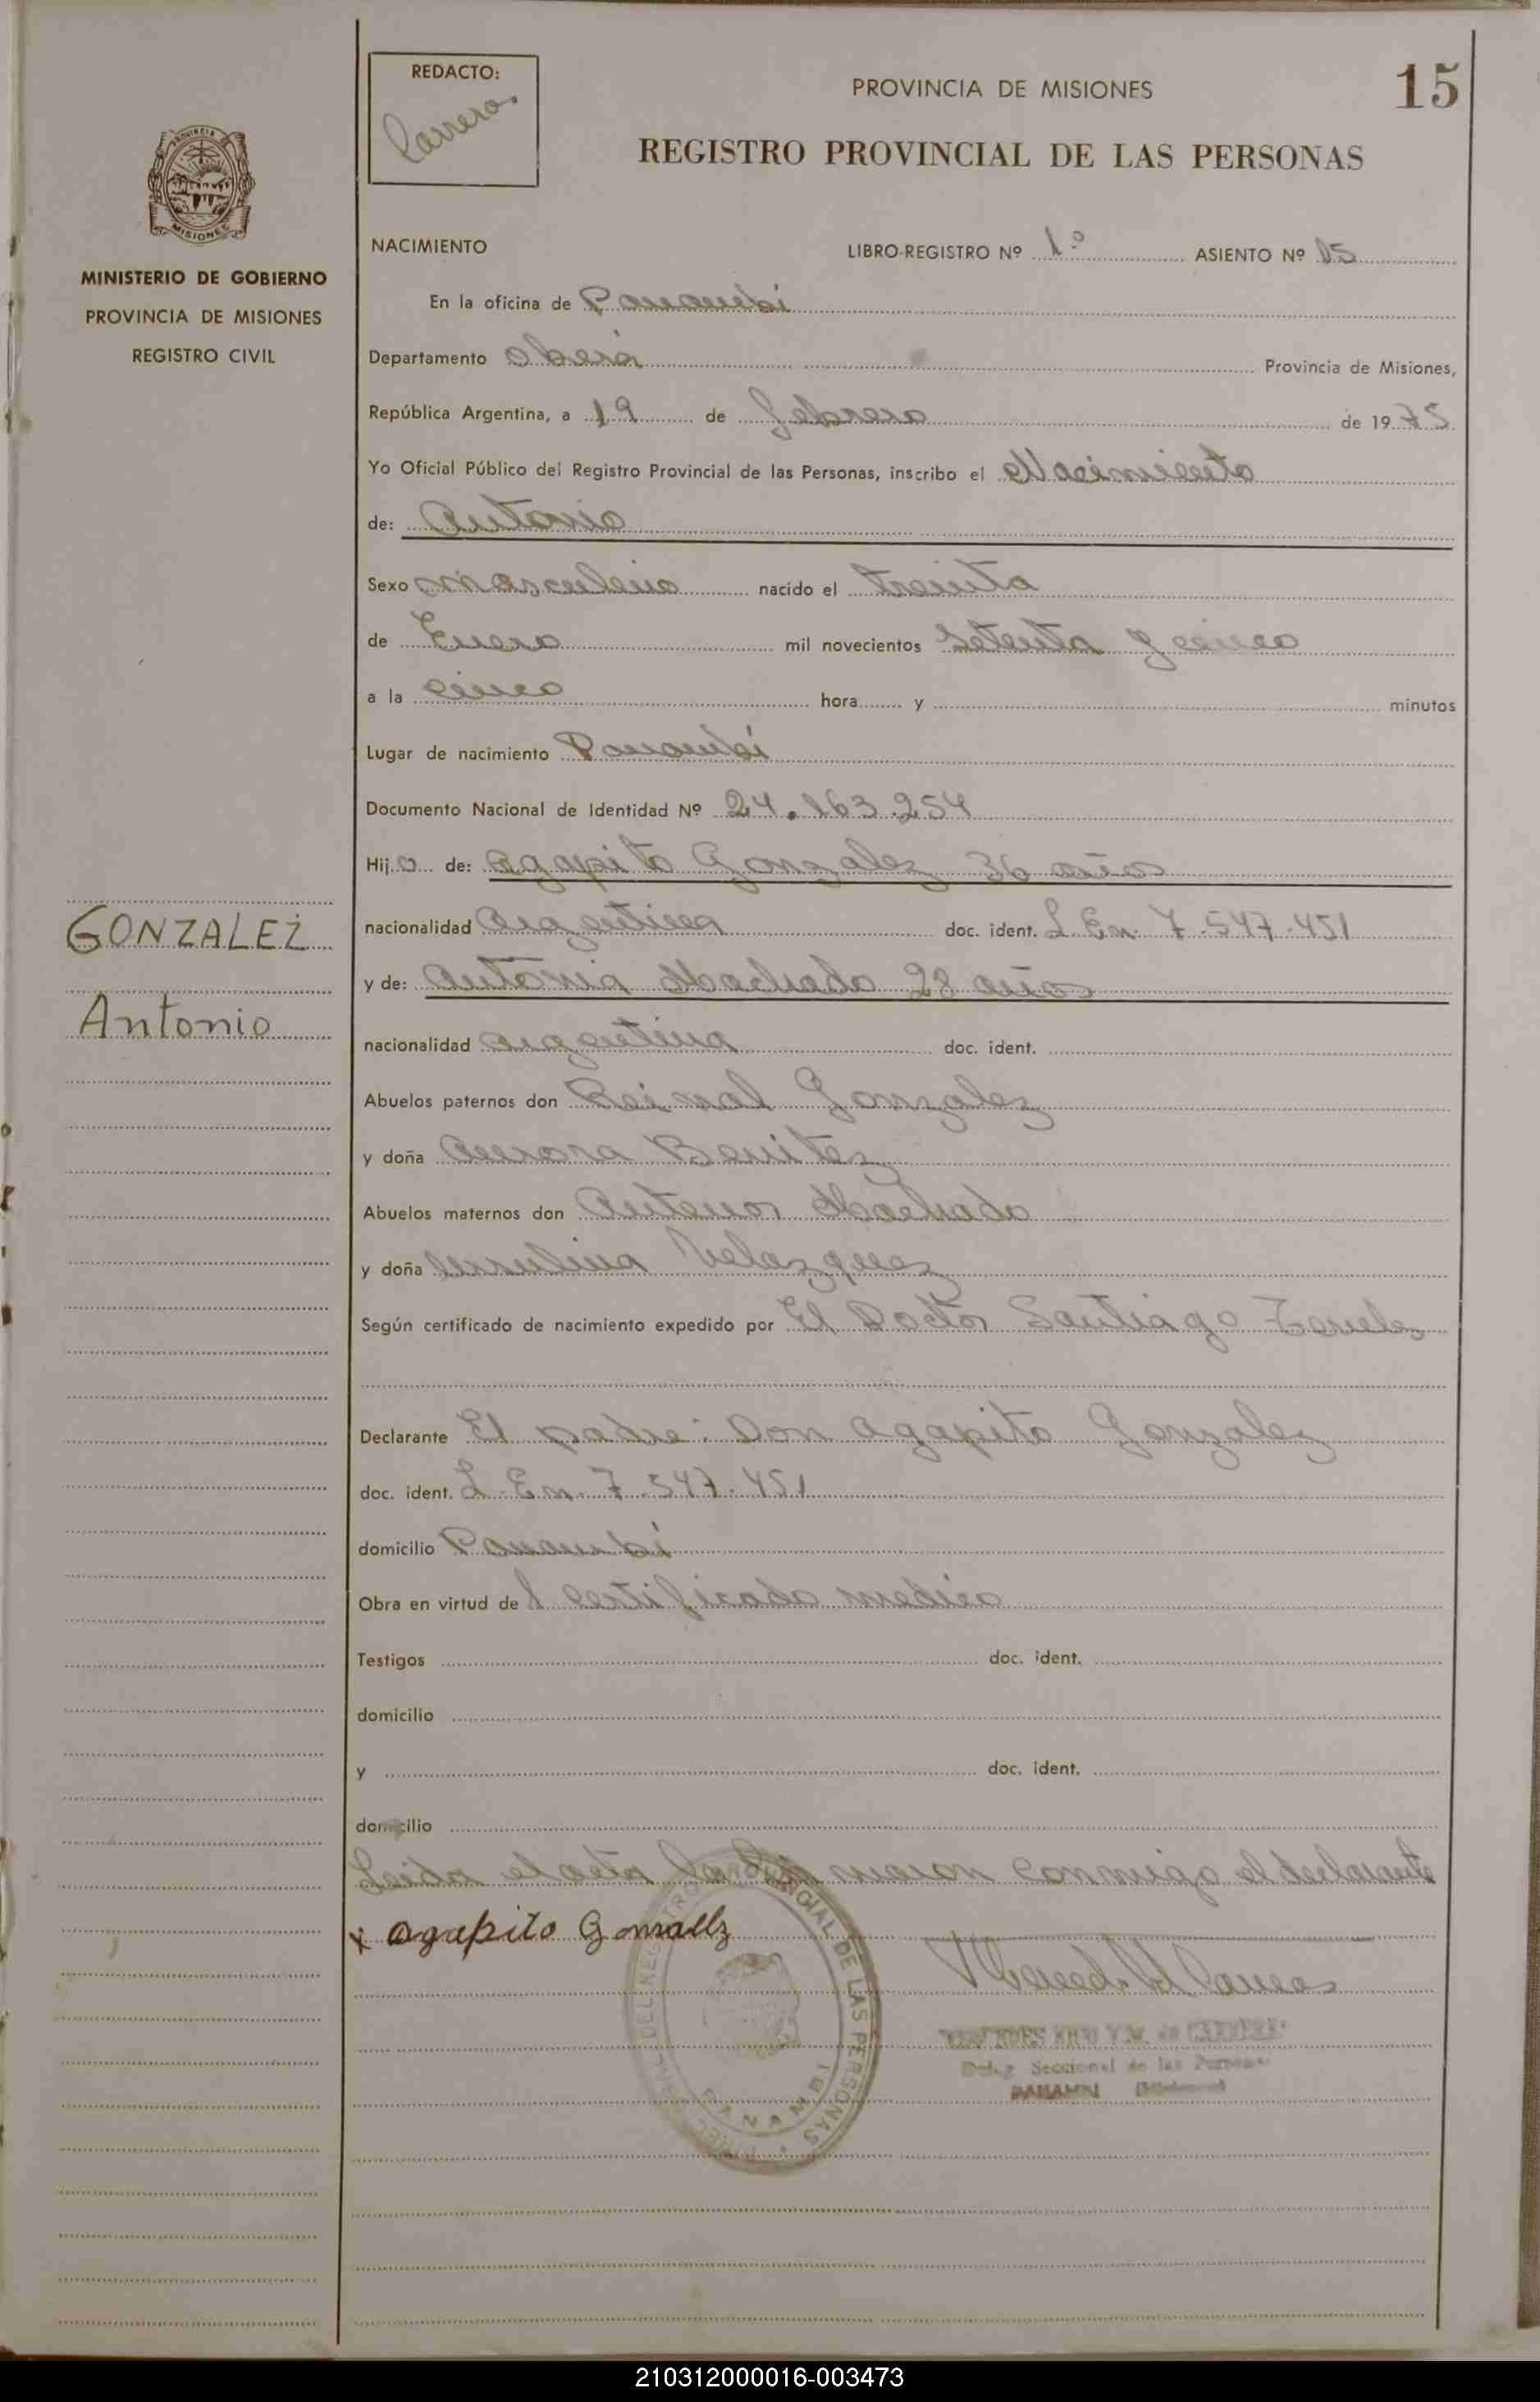 REDACTO:
Carrera
PROVINCIA DE MISIONES
15
REGISTRO PROVINCIAL DE LAS PERSONAS
MISIONES
MINISTERIO DE GOBIERNO
PROVINCIA DE MISIONES
REGISTRO CIVIL
NACIMIENTO LIBRO-REGISTRO Nº 1º ASIENTO Nº 15
En la oficina de Panambí
Departamento Oberá Provincia de Misiones,
República Argentina, a 19 de Febrero de 1975
Yo Oficial Público del Registro Provincial de las Personas, inscribo el Nacimiento
de: Antonio
Sexo masculino nacido el treinta
de Enero mil novecientos setenta y cinco
a la cinco hora y minutos
Lugar de nacimiento Panambí
Documento Nacional de Identidad Nº 24.163.254
Hijo de: Agapito Gonzalez 36 años
GONZALEZ
Antonio
nacionalidad Argentina doc. ident. L. En. 7.547.451
y de: Antonia Machado 28 años
nacionalidad argentina doc. ident.
Abuelos paternos don Gonzalez
y doña Aurora Benitez
Abuelos maternos don Antenor Machado
y doña Ursulina Velazquez
Según certificado de nacimiento expedido por El Doctor Santiago
Declarante El padre: Don Agapito Gonzalez
doc. ident. L. En. 7.547.451
domicilio Panambí
Obra en virtud del certificado medico
Testigos doc. ident.
domicilio
y doc. ident.
domicilio
Leida el acta la firmaron conmigo el declarante
x Agapito Gonzallz
PROVINCIAL DE LAS PERSONAS
PANAMBI
de CARRERA
Seccional de las Personas
PANAMBI (Misiones)
210312000016-003473